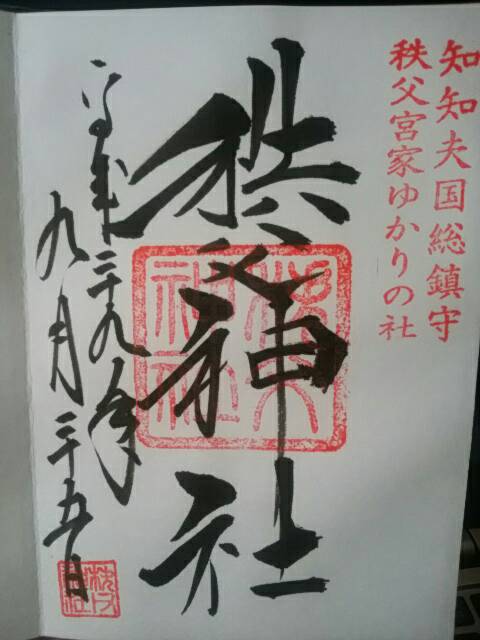 知知夫国総鎮守
秩父宮家ゆかりの社
秩父神社
平成二十九年
九月二十五日
秩父神社